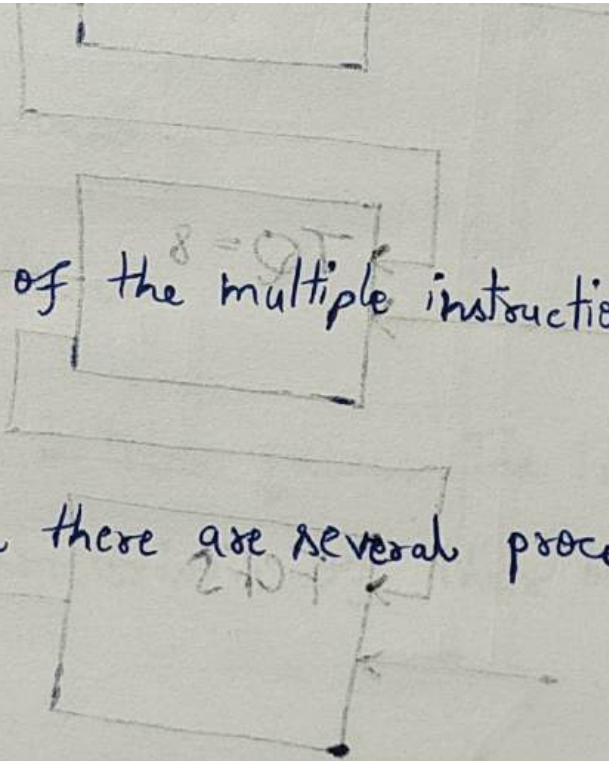 of the multiple instructio
there are several proce